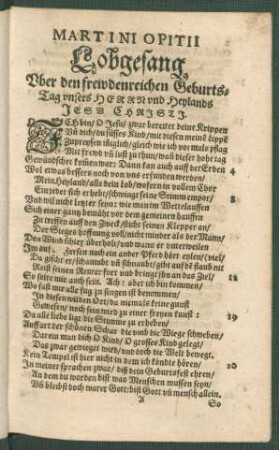 MARTINI OPITII
Lobgesang
Vber den frewdenreichen Geburts-
Tag vnsers HERRN vnd Heylands
JESU CHRISTI.
JCh bin/ O Jesu/ zwar bereitet deine Krippen
Vñ dich/ du süsses Kind/ mit diesen meinē lippē
Zu preysen
Mit frewd vñ lust zu thun/ wañ dieser hohe tag
Gewündschet kom̃en war: Dann kan auch auff der Erden 4
Wol etwas bessers noch von vns erfunden werden/
Mein Heyland/ als dein Lob/ wofern in vollem Chor
Ein jeder sich erhebt/ schwingt seine Stimm empor/
Vnd wil nicht letzter seyn: wie man im Wettelauffen
Sich einer gantz bemüht vor dem gemeinen hauffen
Zu treffen auff den Zweck/ sticht seinen Klepper an/
Der Sieges hoffnung voll/ nicht minder als der Mann/
Den Wunsch schier vberholt/ vnd wann er vnterweilen
Jm auff. Fersen nach ein ander Pferd hört eylen/
Da
Reist seinen Reuter fort vnd bringt jhn an das Ziel/ 12
So solte mir auch sein. Ach: aber ich bin kommen/
Wo fast mir alle fug zu singen ist benommen/
Jn diesen wilden Ort/ da niemals keine gunst
Gewesen/ noch sein wird zu einer freyen kunst: 19
Da alle liebe ligt die Stimme zu erheben/
Auff art der schönen Schar die vmb die Wiege schweben/
Darein man dich O Kind/ O grosses Kind gelegt/
Das zwar gewieget wird/ vnd doch die Welt bewegt.
Kein Tempel ist hier nicht in dem ich köndte hören/ 20
Jn meiner sprachen zwar/ diß dein Geburtsfest ehren/
An dem du worden bist was Menschen müssen seyn/
Vñ bleibst doch warer Gott: bist Gott vñ mensch allein.
A
So